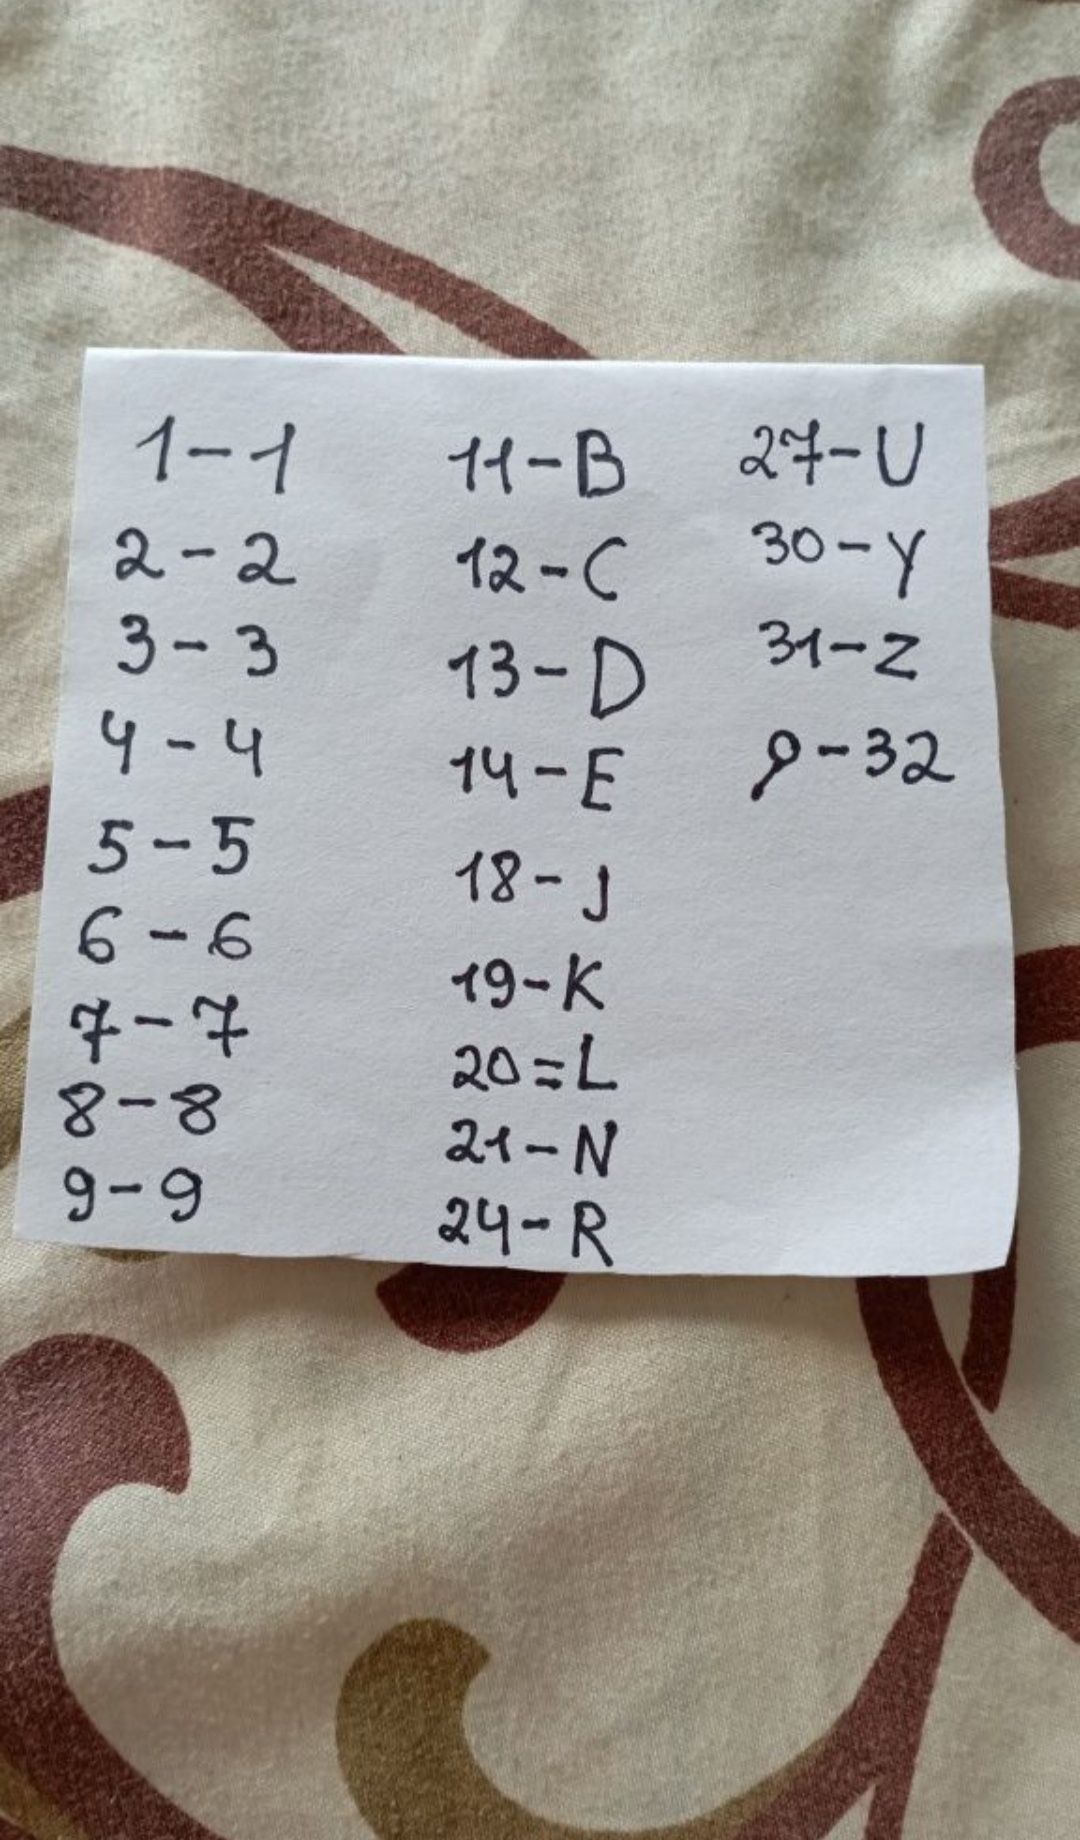 1-1
2-2
3-3
4-4
5-5
6-6
7-7
8-8
9-9
11-B
12-C
13-D
14-E
18-J
19-K
20=L
21-N
24-R
27-U
30-Y
31-Z
-32